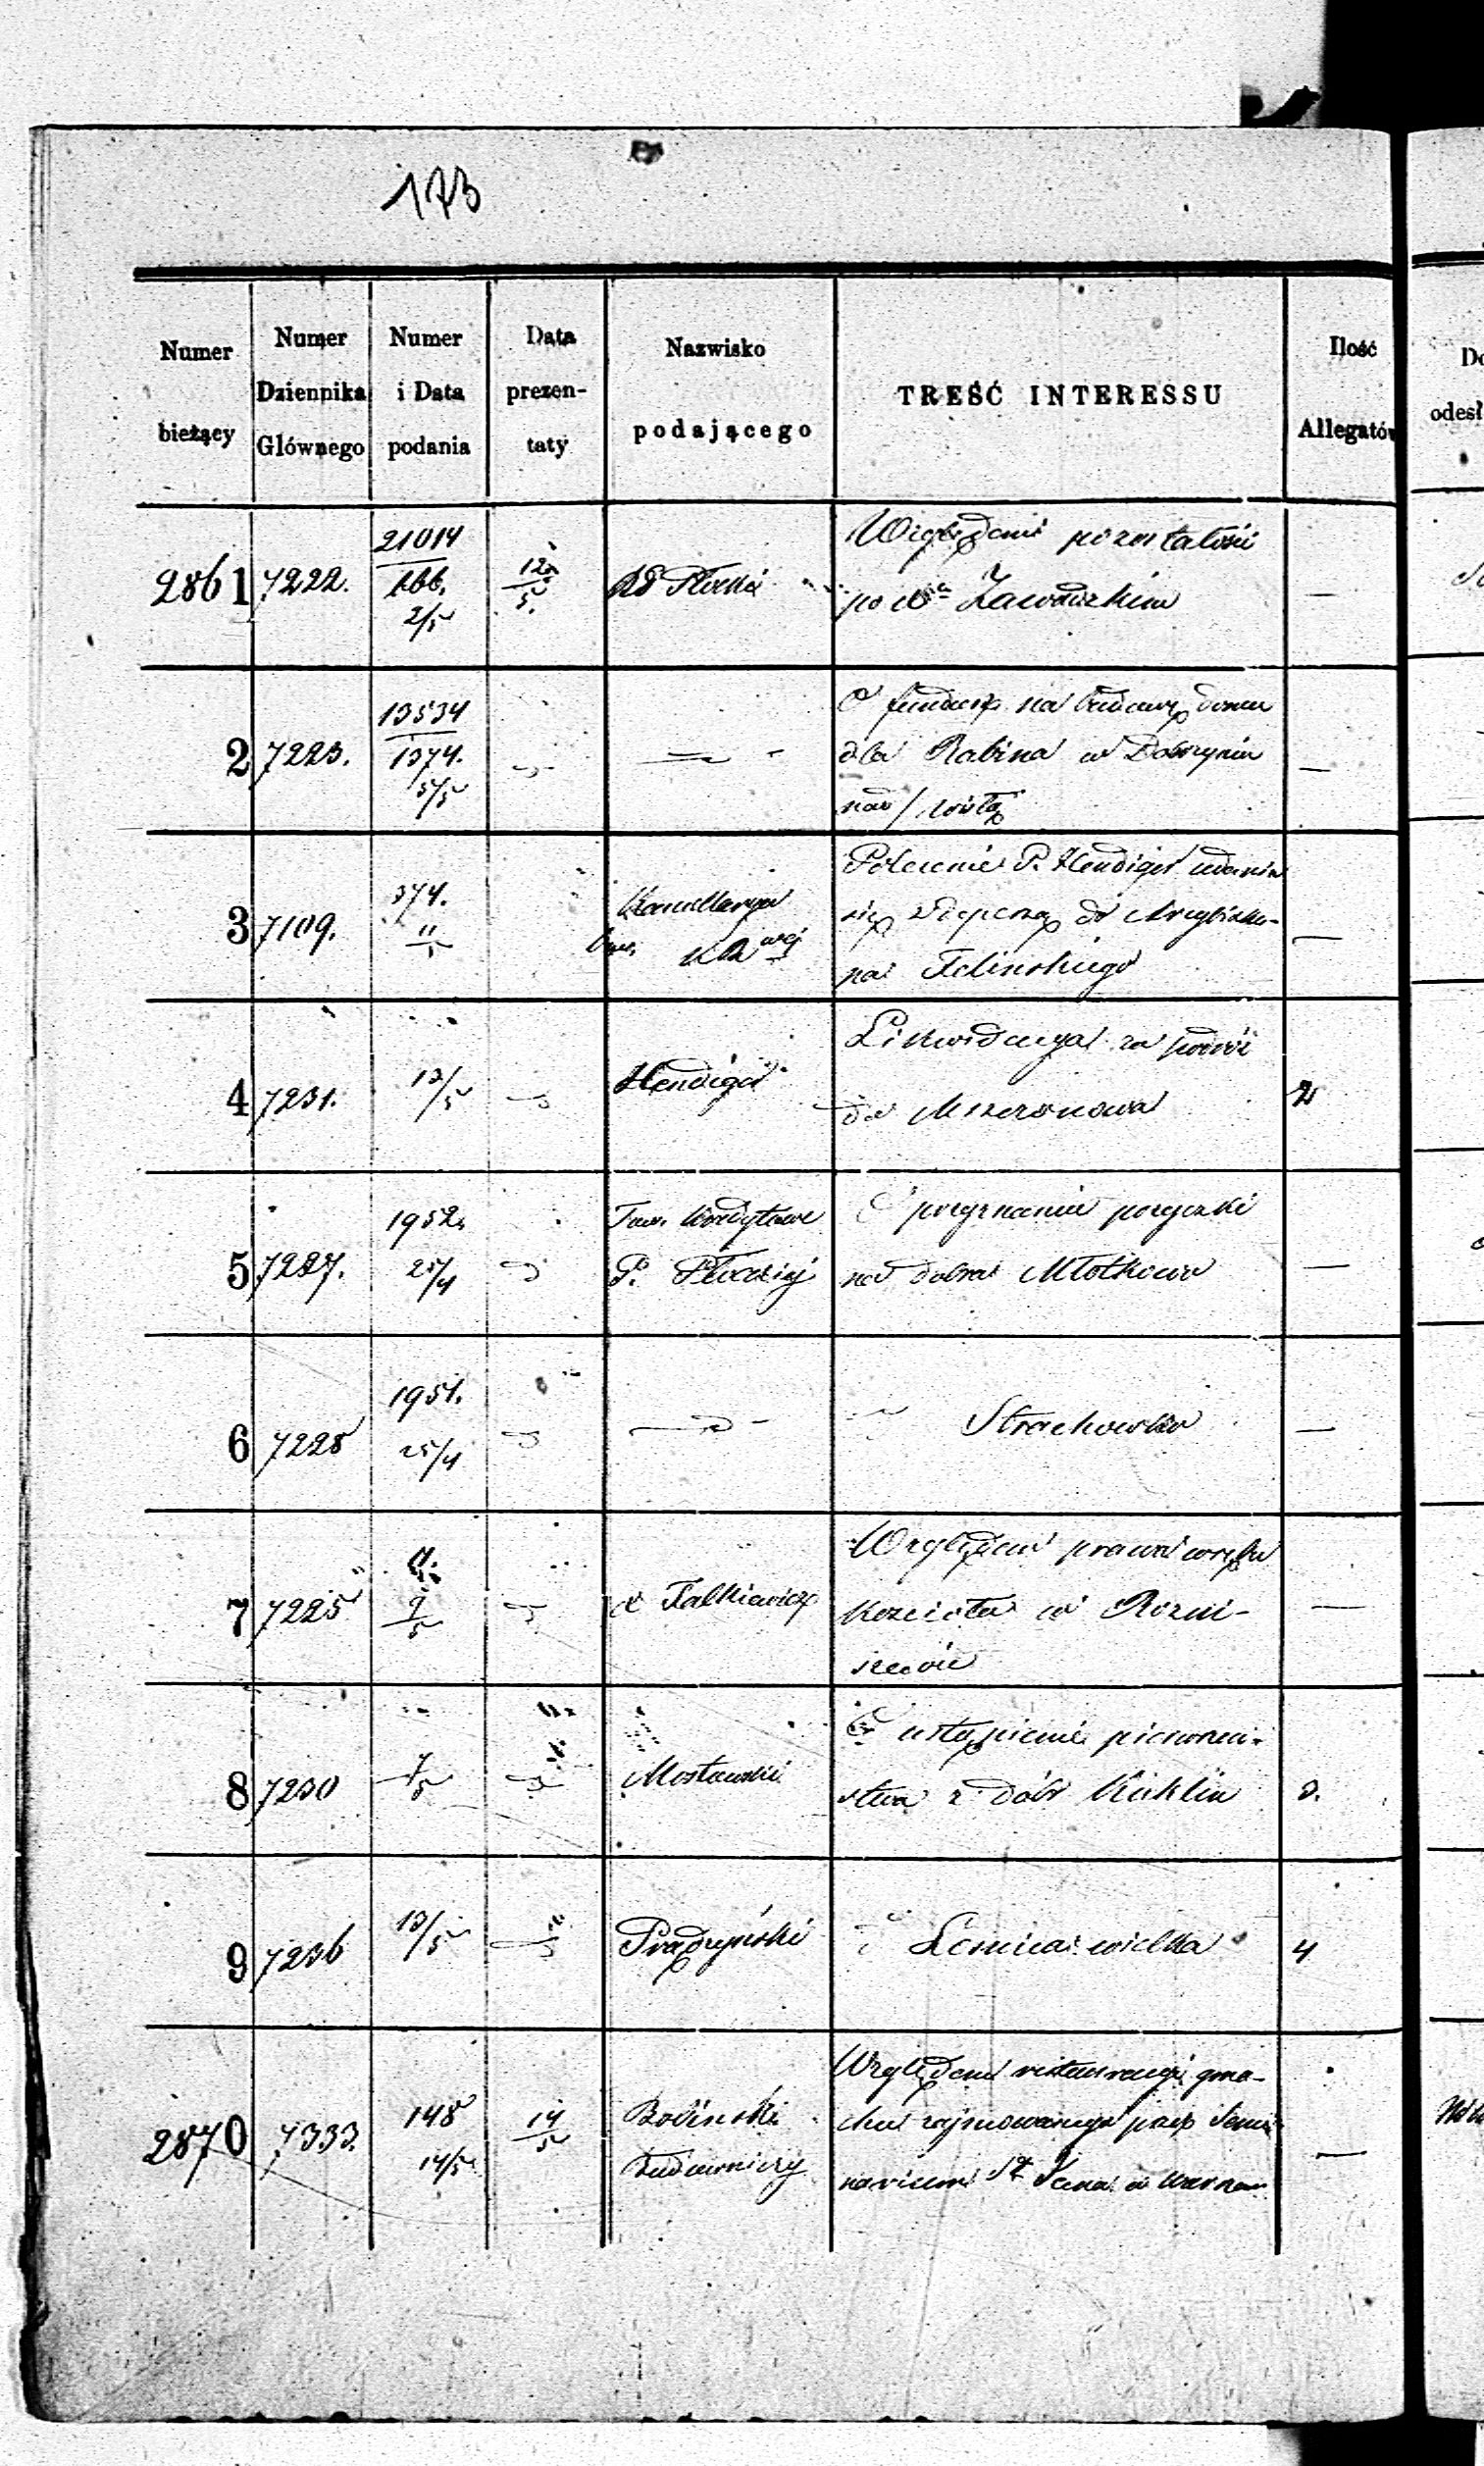 173
Numer bieżący
Numer Dziennika Głównego
Numer i Data podania
Data prezen- taty
Nazwisko podającego
TREŚĆ INTERESSU
Ilość Allegatów
2861 7222. 21014 166. 2/5 12/5 Rd Płocki
Względem pozostałości
po Zawadzkim
—
2 7223. 13534 1374. 5/5
O fundusz na budowę domu
dla Rabina w Dobrzyniu
nad/Wisłą
—
3 7109. 374. 11/5
Kancellarya
Polecenie P. Hendiger udania
się z depeszą do Arcybisku-
pa Felinskiego
—
4 7231. 13/5 Hendiger
Likwidacya za podróż
do Mszczonowa
2
5 7227. 1952. 25/4
Tow. Kredytowe
P. Płockiej
O przyznaniu pożyczki
na dobra Młotkowo
—
6 7228 1951. 25/4
Strachowko
—
7 7225 9/5
X Falkiewicz
Względem prawa wrębu
Kościoła w Rozni-
szewie
—
8 7230 7/5
Mosławski
O ustąpienie pierwszeń-
stwa z dóbr Kuklin
3.
9 7236 13/5
Prądzyński
d Lesnica wielka
4
2870 7333. 148 14/5 14/5
Boliński
Budowniczy
Względem restauracyi gma-
chu zajmowanego przez Semi-
narium St Jana w Warszaw
—
Do
odesł